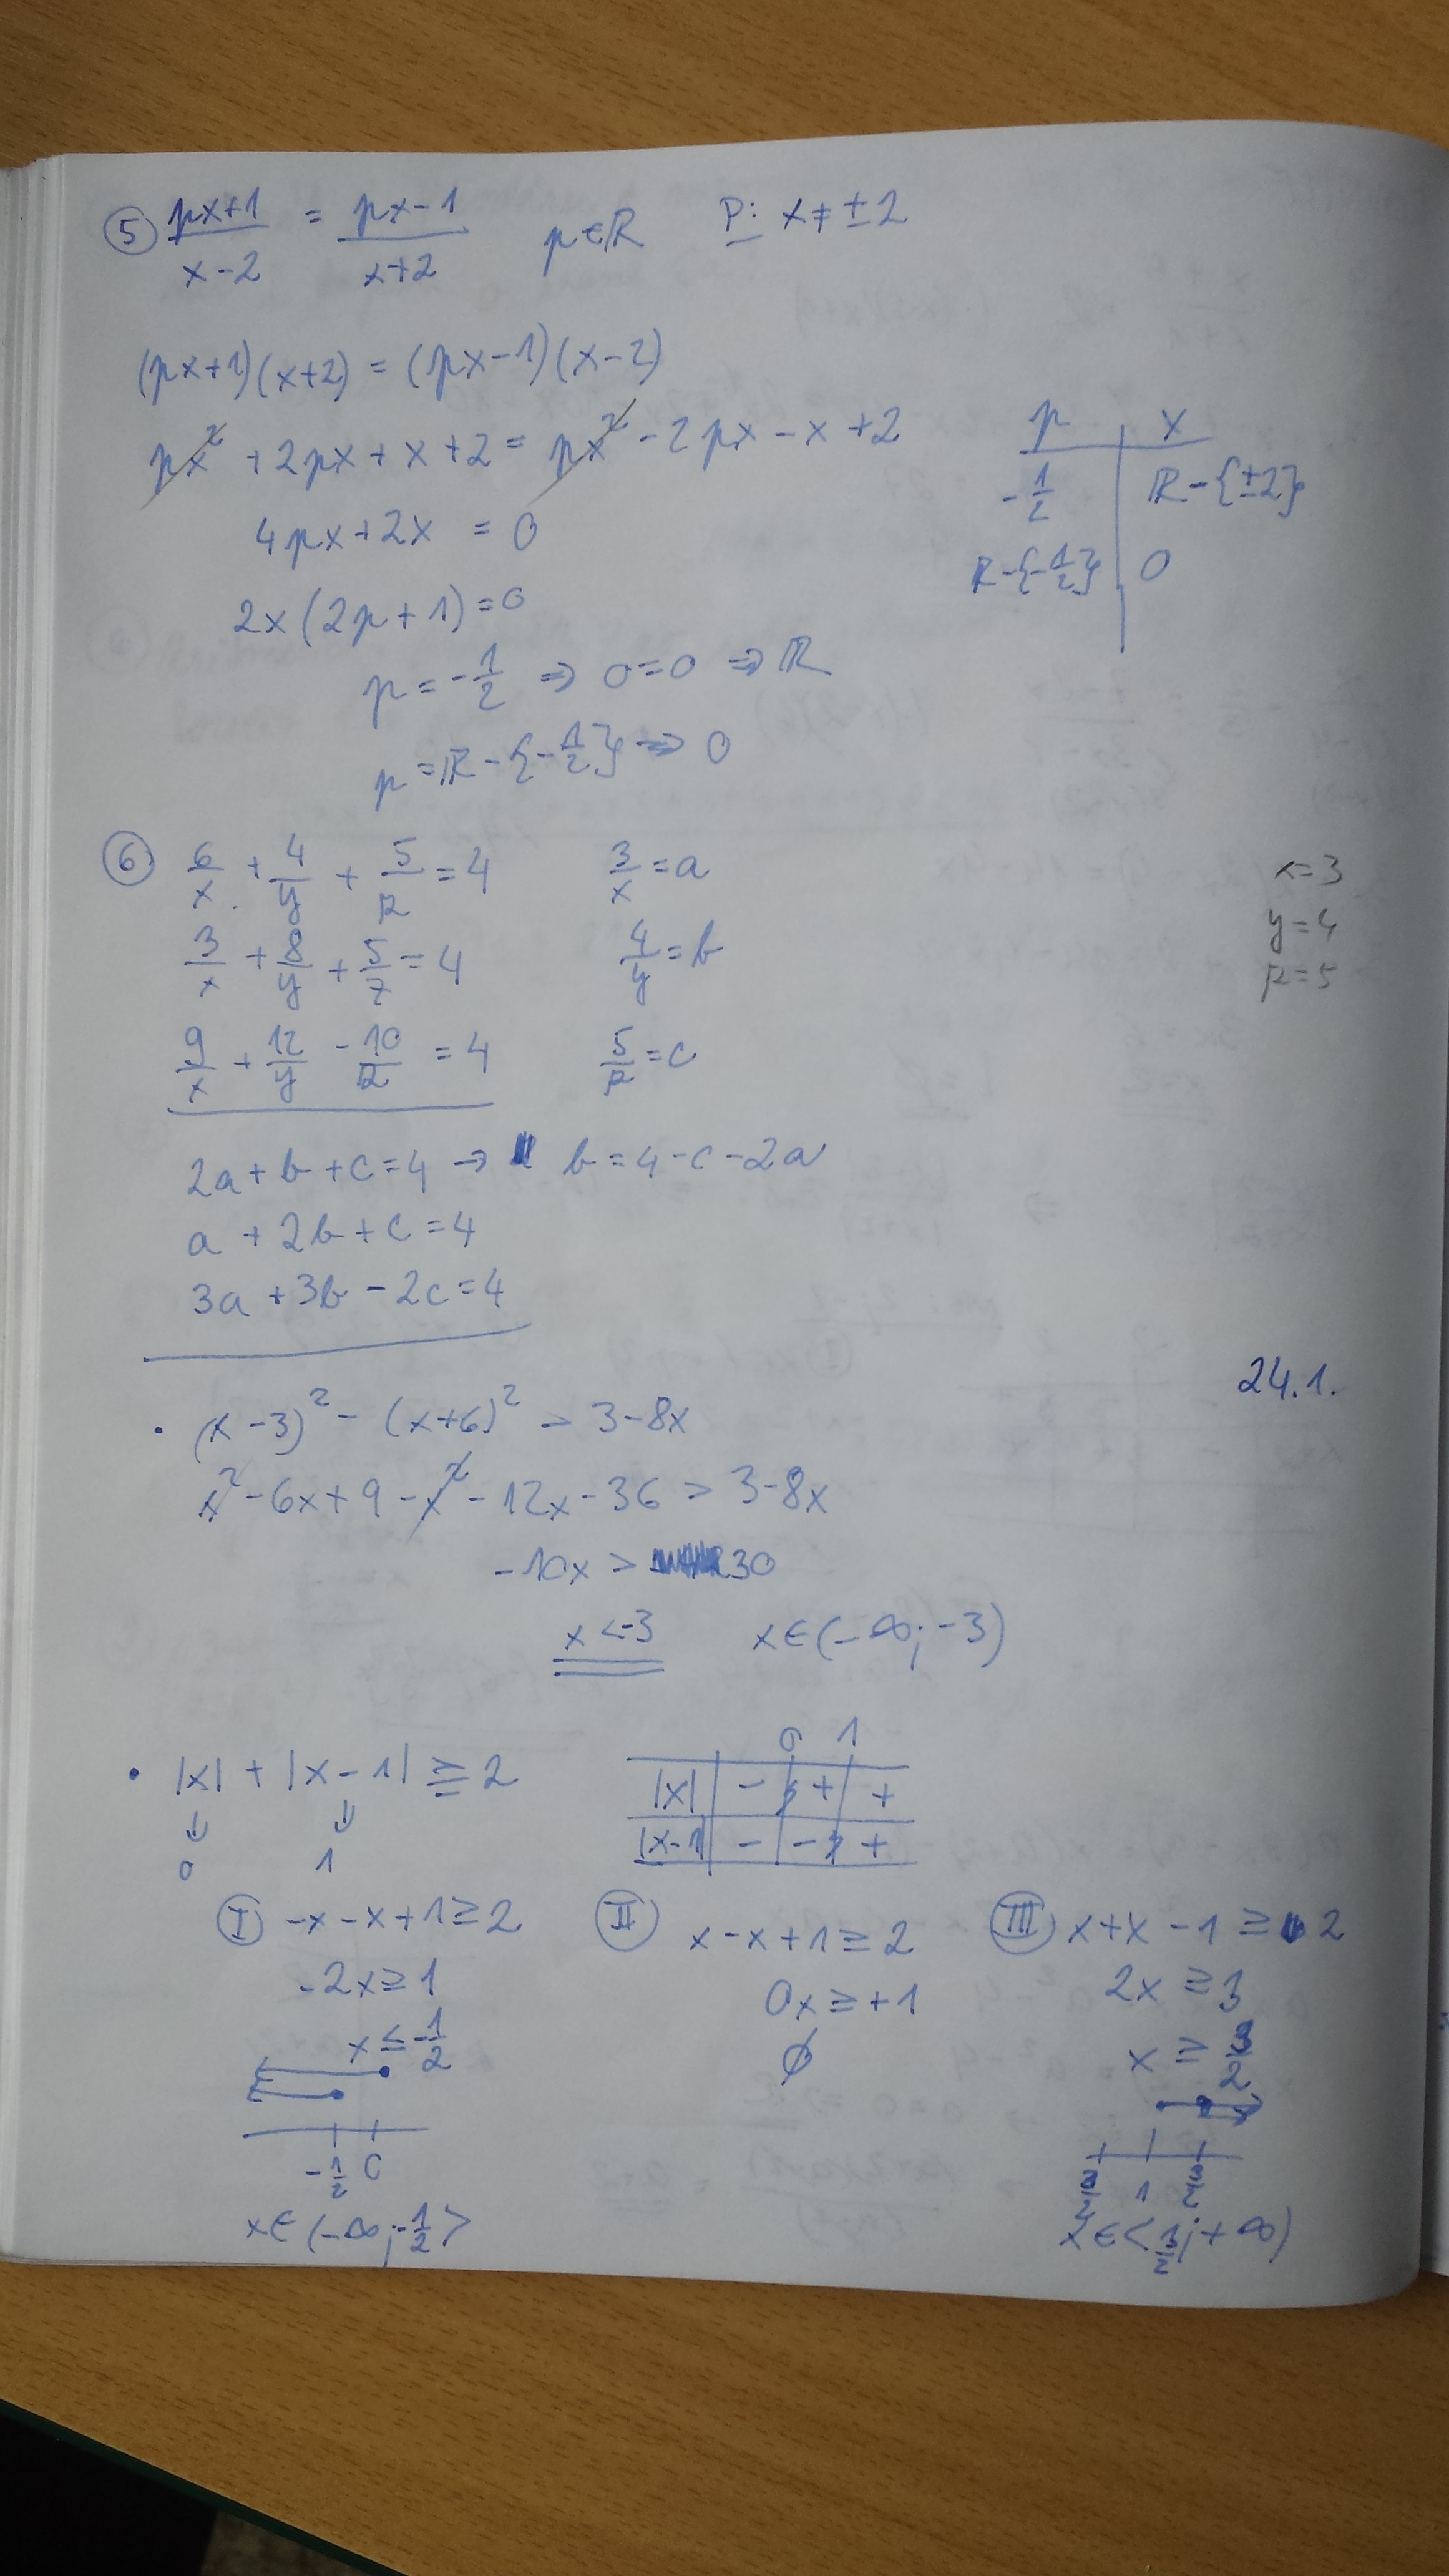 ⑤ (px+1)/(x-2) = (px-1)/(x+2)   p∈ℝ   P: x≠±2
(px+1)(x+2) = (px-1)(x-2)
px² + 2px + x + 2 = px² - 2px - x + 2
4px + 2x = 0
2x(2p+1) = 0
p = -1/2 ⇒ 0=0 ⇒ ℝ
p = ℝ-{-1/2} ⇒ 0
p | x
-1/2 | ℝ-{±2}
ℝ-{-1/2} | 0
⑥ 6/x + 4/y + 5/z = 4   3/x = a
3/x + 8/y + 5/z = 4   4/y = b
9/x + 12/y - 10/z = 4   5/z = c
x=3
y=4
z=5
2a + b + c = 4 → b = 4-c-2a
a + 2b + c = 4
3a + 3b - 2c = 4
24.1.
• (x-3)² - (x+6)² > 3-8x
x² - 6x + 9 - x² - 12x - 36 > 3-8x
-10x > 30
x < -3   x∈(-∞; -3)
• |x| + |x-1| ≥ 2
⇓ ⇓
0 1
0 1
|x| | - | + | +
|x-1| | - | - | +
Ⅰ -x-x+1 ≥ 2
-2x ≥ 1
x ≤ -1/2
-1/2 0
x∈(-∞; -1/2>
Ⅱ x-x+1 ≥ 2
0x ≥ +1
∅
Ⅲ x+x-1 ≥ 2
2x ≥ 3
x ≥ 3/2
1 3/2
x∈<3/2; +∞)